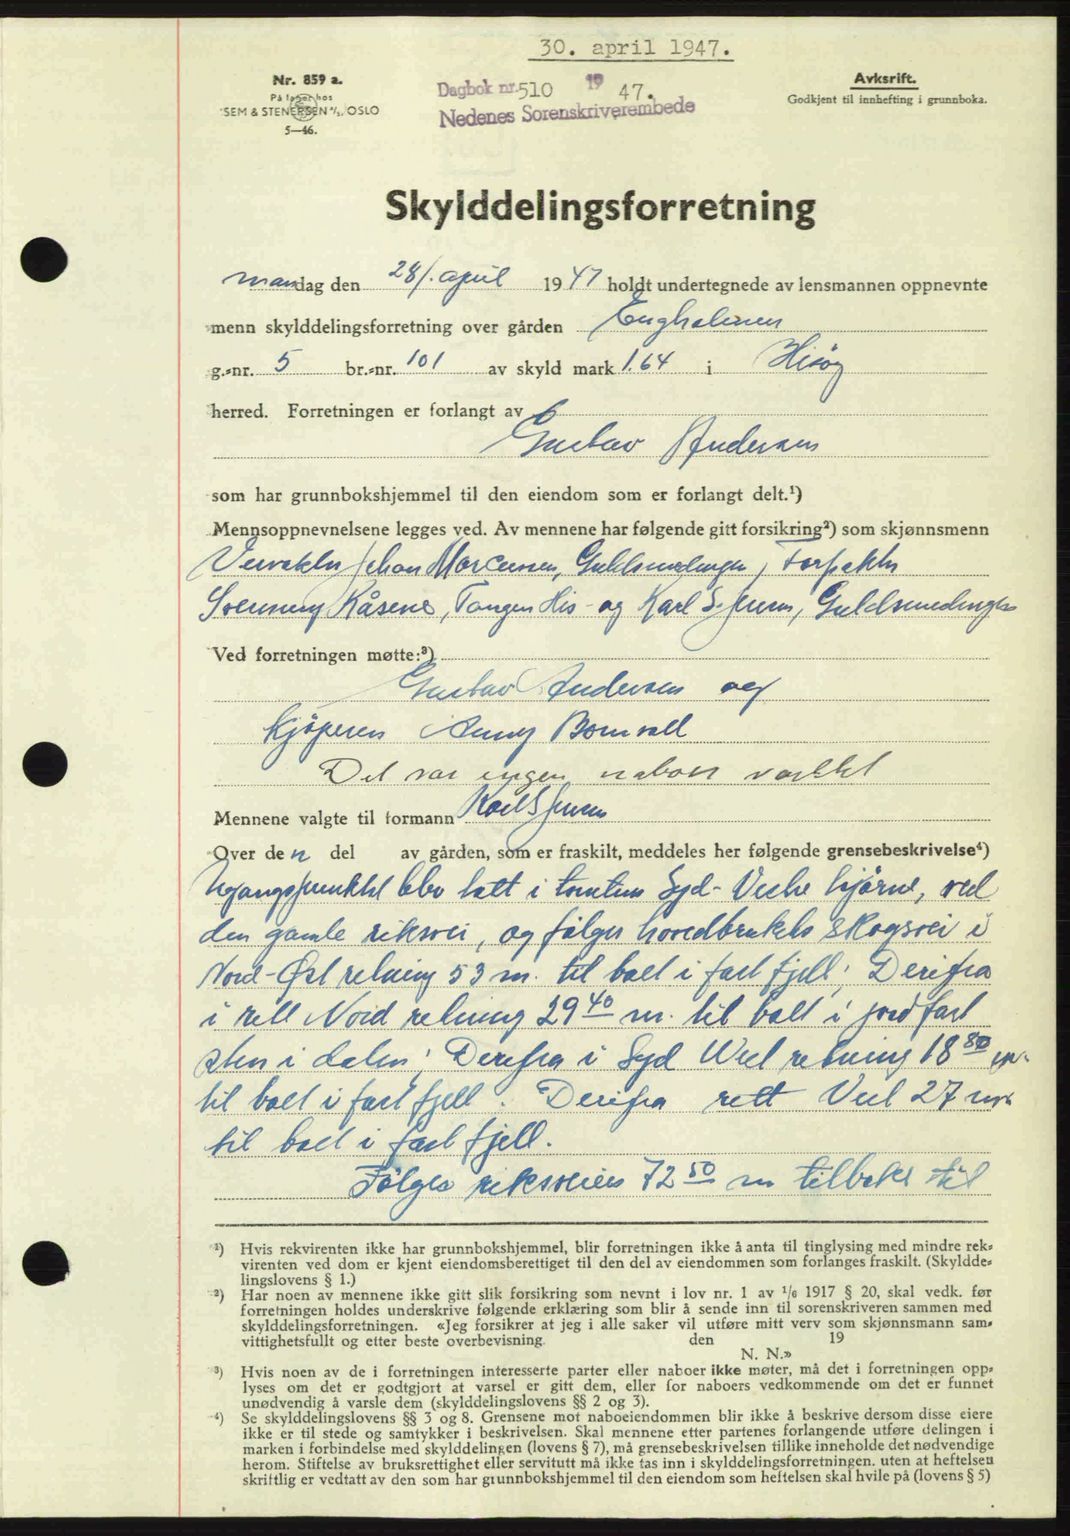 30. april 1947.
Nr. 859 a.
På lager hos
SEM & STENERSEN A/S, OSLO
5—46.
Dagbok nr. 510 1947.
Nedenes Sorenskriverembede
Avksrift.
Godkjent til innhefting i grunnboka.
Skylddelingsforretning
mandag den 28/. april 1947 holdt undertegnede av lensmannen oppnevnte
menn skylddelingsforretning over gården Engholmen
g.-nr. 5 br.-nr. 101 av skyld mark 1.64 i Hisøy
herred. Forretningen er forlangt av
Gustav Andersen
som har grunnbokshjemmel til den eiendom som er forlangt delt.¹)
Mennsoppnevnelsene legges ved. Av mennene har følgende gitt forsikring²) som skjønnsmenn
Johan Marcussen, Guldsmedengen, Forpakter
Kåsene, Tangen His - og Karl S. Jensen, Guldsmedengen
Ved forretningen møtte:³)
Gustav Andersen og
Kjøperen Anny Bomvall
Det var ingen naboer varslet
Mennene valgte til formann Karl S Jensen
Over den del av gården, som er fraskilt, meddeles her følgende grensebeskrivelse⁴)
Utgangspunktet blev satt i tomtens Syd-Vestre hjørne, ved
den gamle riksvei, og følger hovedbrukets skogsvei i
Nord-Øst retning 53 m. til bolt i fast fjell; Derifra
i rett Nord retning 29 40 m. til bolt i jordfast
sten i dalen; Derifra i Syd Vest retning 18 80 m.
til bolt i fast fjell. Derifra rett Vest 27 m.
til bolt i fast fjell.
Følger riksveien 72 50 m tilbake til
¹) Hvis rekvirenten ikke har grunnbokshjemmel, blir forretningen ikke å anta til tinglysing med mindre rek-
virenten ved dom er kjent eiendomsberettiget til den del av eiendommen som forlanges fraskilt. (Skyldde-
lingslovens § 1.)
²) Har noen av mennene ikke gitt slik forsikring som nevnt i lov nr. 1 av 1/6 1917 § 20, skal vedk. før
forretningen holdes underskrive følgende erklæring som blir å sende inn til sorenskriveren sammen med
skylddelingsforretningen. «Jeg forsikrer at jeg i alle saker vil utføre mitt verv som skjønnsmann sam-
vittighetsfullt og etter beste overbevisning. den 19
N. N.»
³) Hvis noen av de i forretningen interesserte parter eller naboer ikke møter, må det i forretningen opp-
lyses om det er godtgjort at varsel er gitt dem, eller for naboers vedkommende om det er funnet
unødvendig å varsle dem (skylddelingslovens §§ 2 og 3).
⁴) Se skylddelingslovens §§ 3 og 8. Grensene mot naboeiendommen blir ikke å beskrive dersom disse eiere
ikke er til stede og samtykker i beskrivelsen. Skal mennene etter partenes forlangende utføre delingen i
marken i forbindelse med skylddelingen (lovens § 7), må grensebeskrivelsen tillike inneholde det nødvendige
herom. Stiftelse av bruksrettighet eller servitutt må ikke tas inn i skylddelingsforretningen. uten at heftelsen
skriftlig er vedtatt av den som har grunnbokshjemmel til den eiendom som heftelsen skal hvile på (lovens § 5)